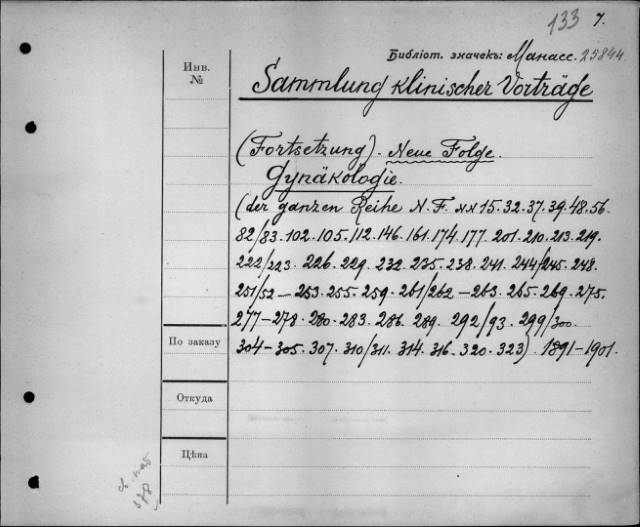 133 7.
Библіот. значекъ: Манасс. 25844
Инв.
№
Sammlung klinischer Vorträge
(Fortsetzung). Neue Folge.
Gynäkologie.
(der ganzen Reihe N. F. №№ 15. 32. 37. 39. 48. 56.
82/83. 102. 105. 112. 146. 161. 174. 177. 201. 210. 213. 219.
222/223. 226. 229. 232. 235. 238. 241. 244/245. 248.
251/52 — 253. 255. 259. 261/262 — 263. 265. 269. 275.
277 — 278. 280. 283. 286. 289. 292/93. 299/300.
304 — 305. 307. 310/311. 314. 316. 320. 323) 1891 — 1901.
По заказу
Откуда
Цѣна